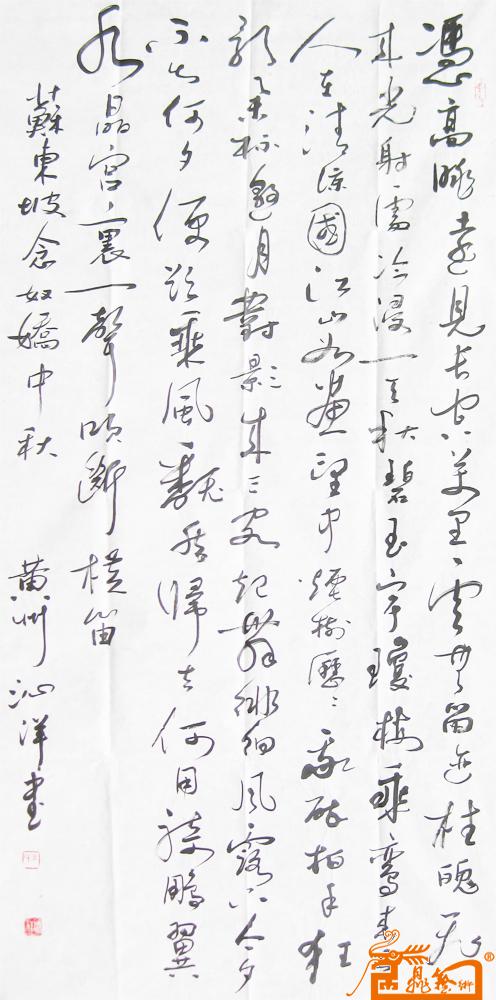 憑高眺遠見長空萬里雲無留迹桂魄飛
來光射處冷浸一天秋碧玉宇瓊樓乘鸞來
人在清涼國江山如畫望中煙樹歷歷我醉拍手狂
歌舉杯邀月對影成三客起舞徘徊風露下今夕
不知何夕便欲乘風翻然歸去何用騎鵬翼
水晶宮裏一聲吹斷橫笛
蘇東坡念奴嬌中秋
黃州沁洋書